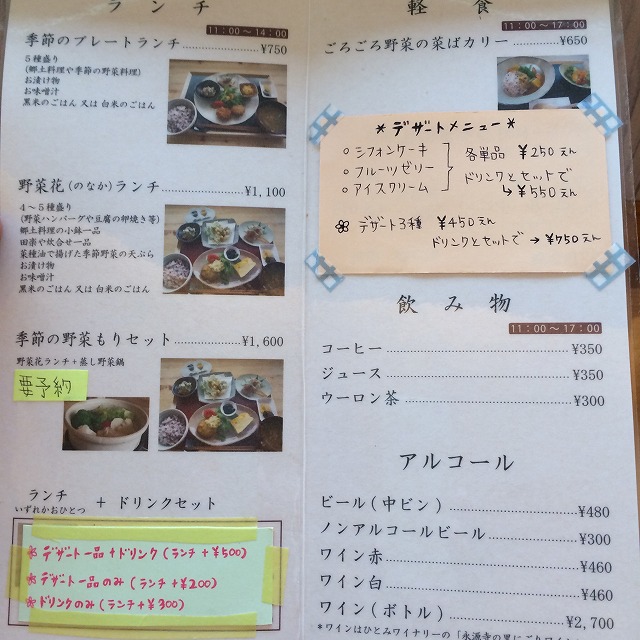 ランチ
11:00～14:00
季節のプレートランチ ¥750
5種盛り
(郷土料理や季節の野菜料理)
お漬け物
お味噌汁
黒米のごはん 又は 白米のごはん
野菜花(のなか)ランチ ¥1,100
4～5種盛り
(野菜ハンバーグや豆腐の卵焼き等)
郷土料理の小鉢一品
田楽や炊合せ一品
菜種油で揚げた季節野菜の天ぷら
お漬け物
お味噌汁
黒米のごはん 又は 白米のごはん
季節の野菜もりセット ¥1,600
野菜花ランチ＋蒸し野菜鍋
要予約
ランチ
いずれかおひとつ
＋ ドリンクセット
デザート一品＋ドリンク (ランチ＋¥500)
デザート一品のみ (ランチ＋¥200)
ドリンクのみ (ランチ＋¥300)
軽食
11:00～17:00
ごろごろ野菜の菜ばカリー ¥650
＊デザートメニュー＊
○シフォンケーキ
○フルーツゼリー
○アイスクリーム
各単品 ¥250えん
ドリンクとセットで
→ ¥550えん
デザート3種 ¥450えん
ドリンクとセットで → ¥750えん
飲み物
11:00～17:00
コーヒー ¥350
ジュース ¥350
ウーロン茶 ¥300
アルコール
ビール(中ビン) ¥480
ノンアルコールビール ¥300
ワイン赤 ¥460
ワイン白 ¥460
ワイン(ボトル) ¥2,700
＊ワインはひとみワイナリーの「永源寺の里にごりワイン